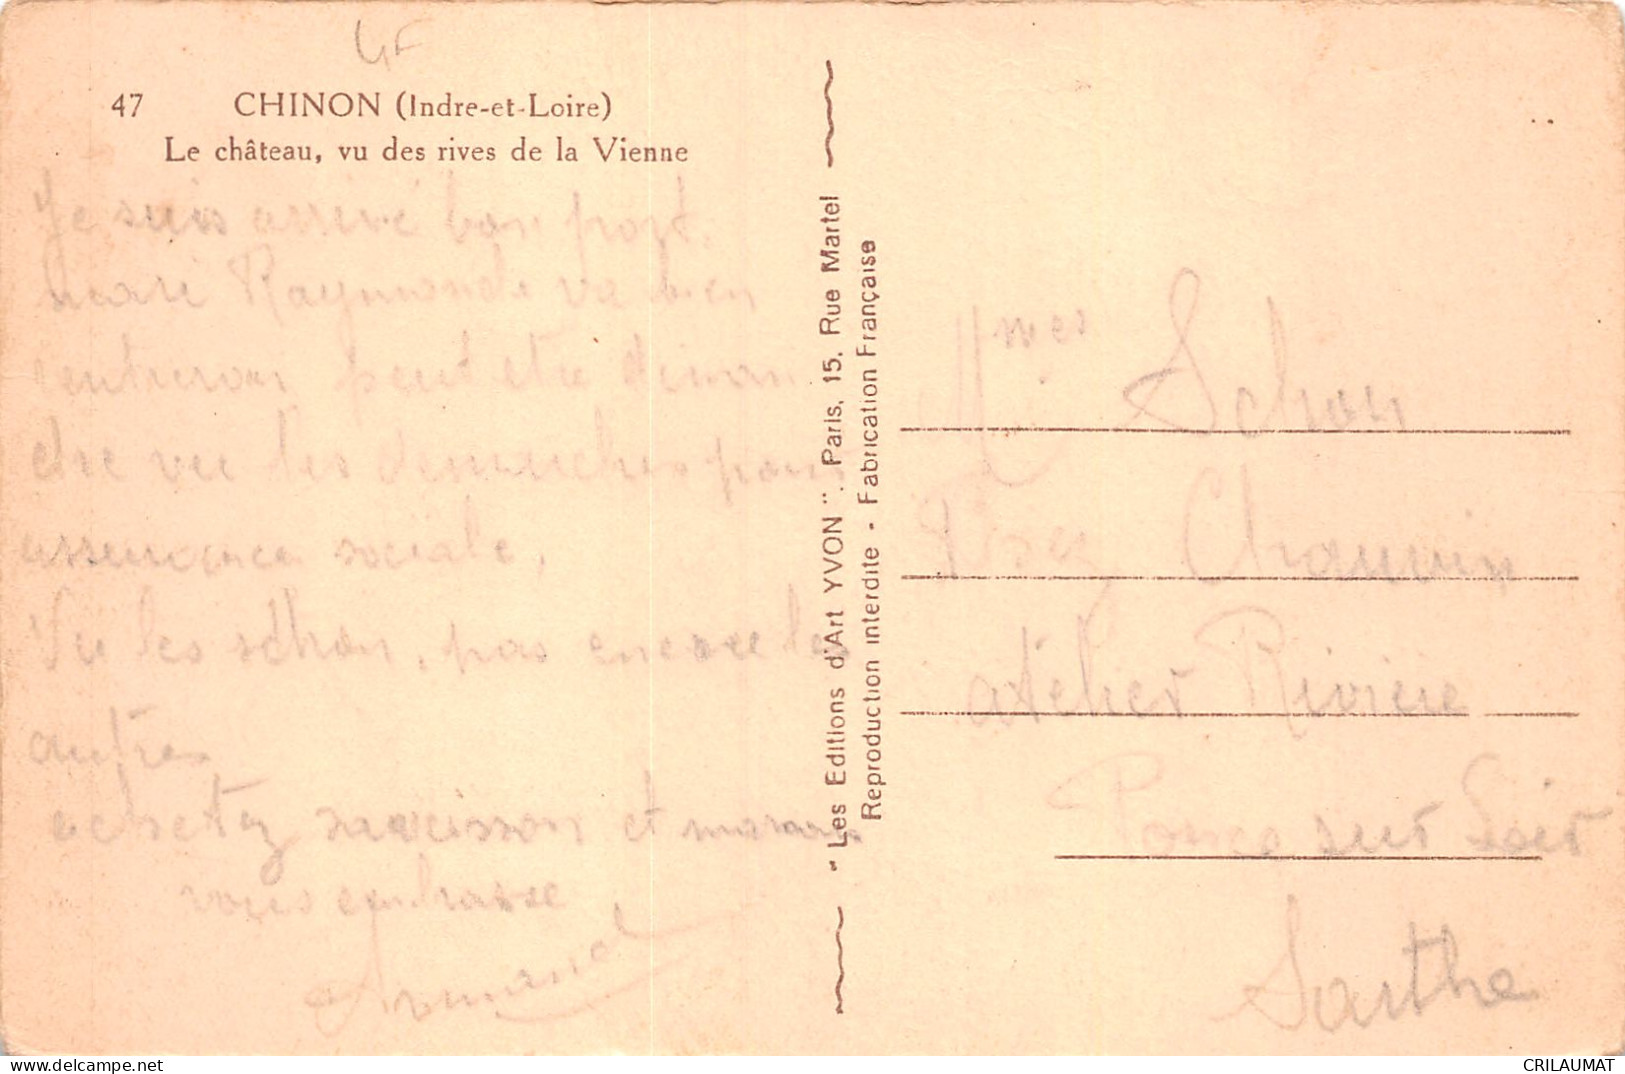 47 CHINON (Indre-et-Loire)
Le château, vu des rives de la Vienne
Je suis arrivé bon port.
Raymonde va bien
rentreron peut etre diman
che vu les demarches pour
assurance sociale,
Vu les schon, pas encore les
autres
achetez saucisson et
vous embrasse
Armand
"Les Editions d'Art YVON". Paris, 15, Rue Martel
Reproduction interdite - Fabrication Française
Mmes Schon
Chauvin
atelier Rivière
Poncé sur Loir
Sarthe
CRILAUMAT